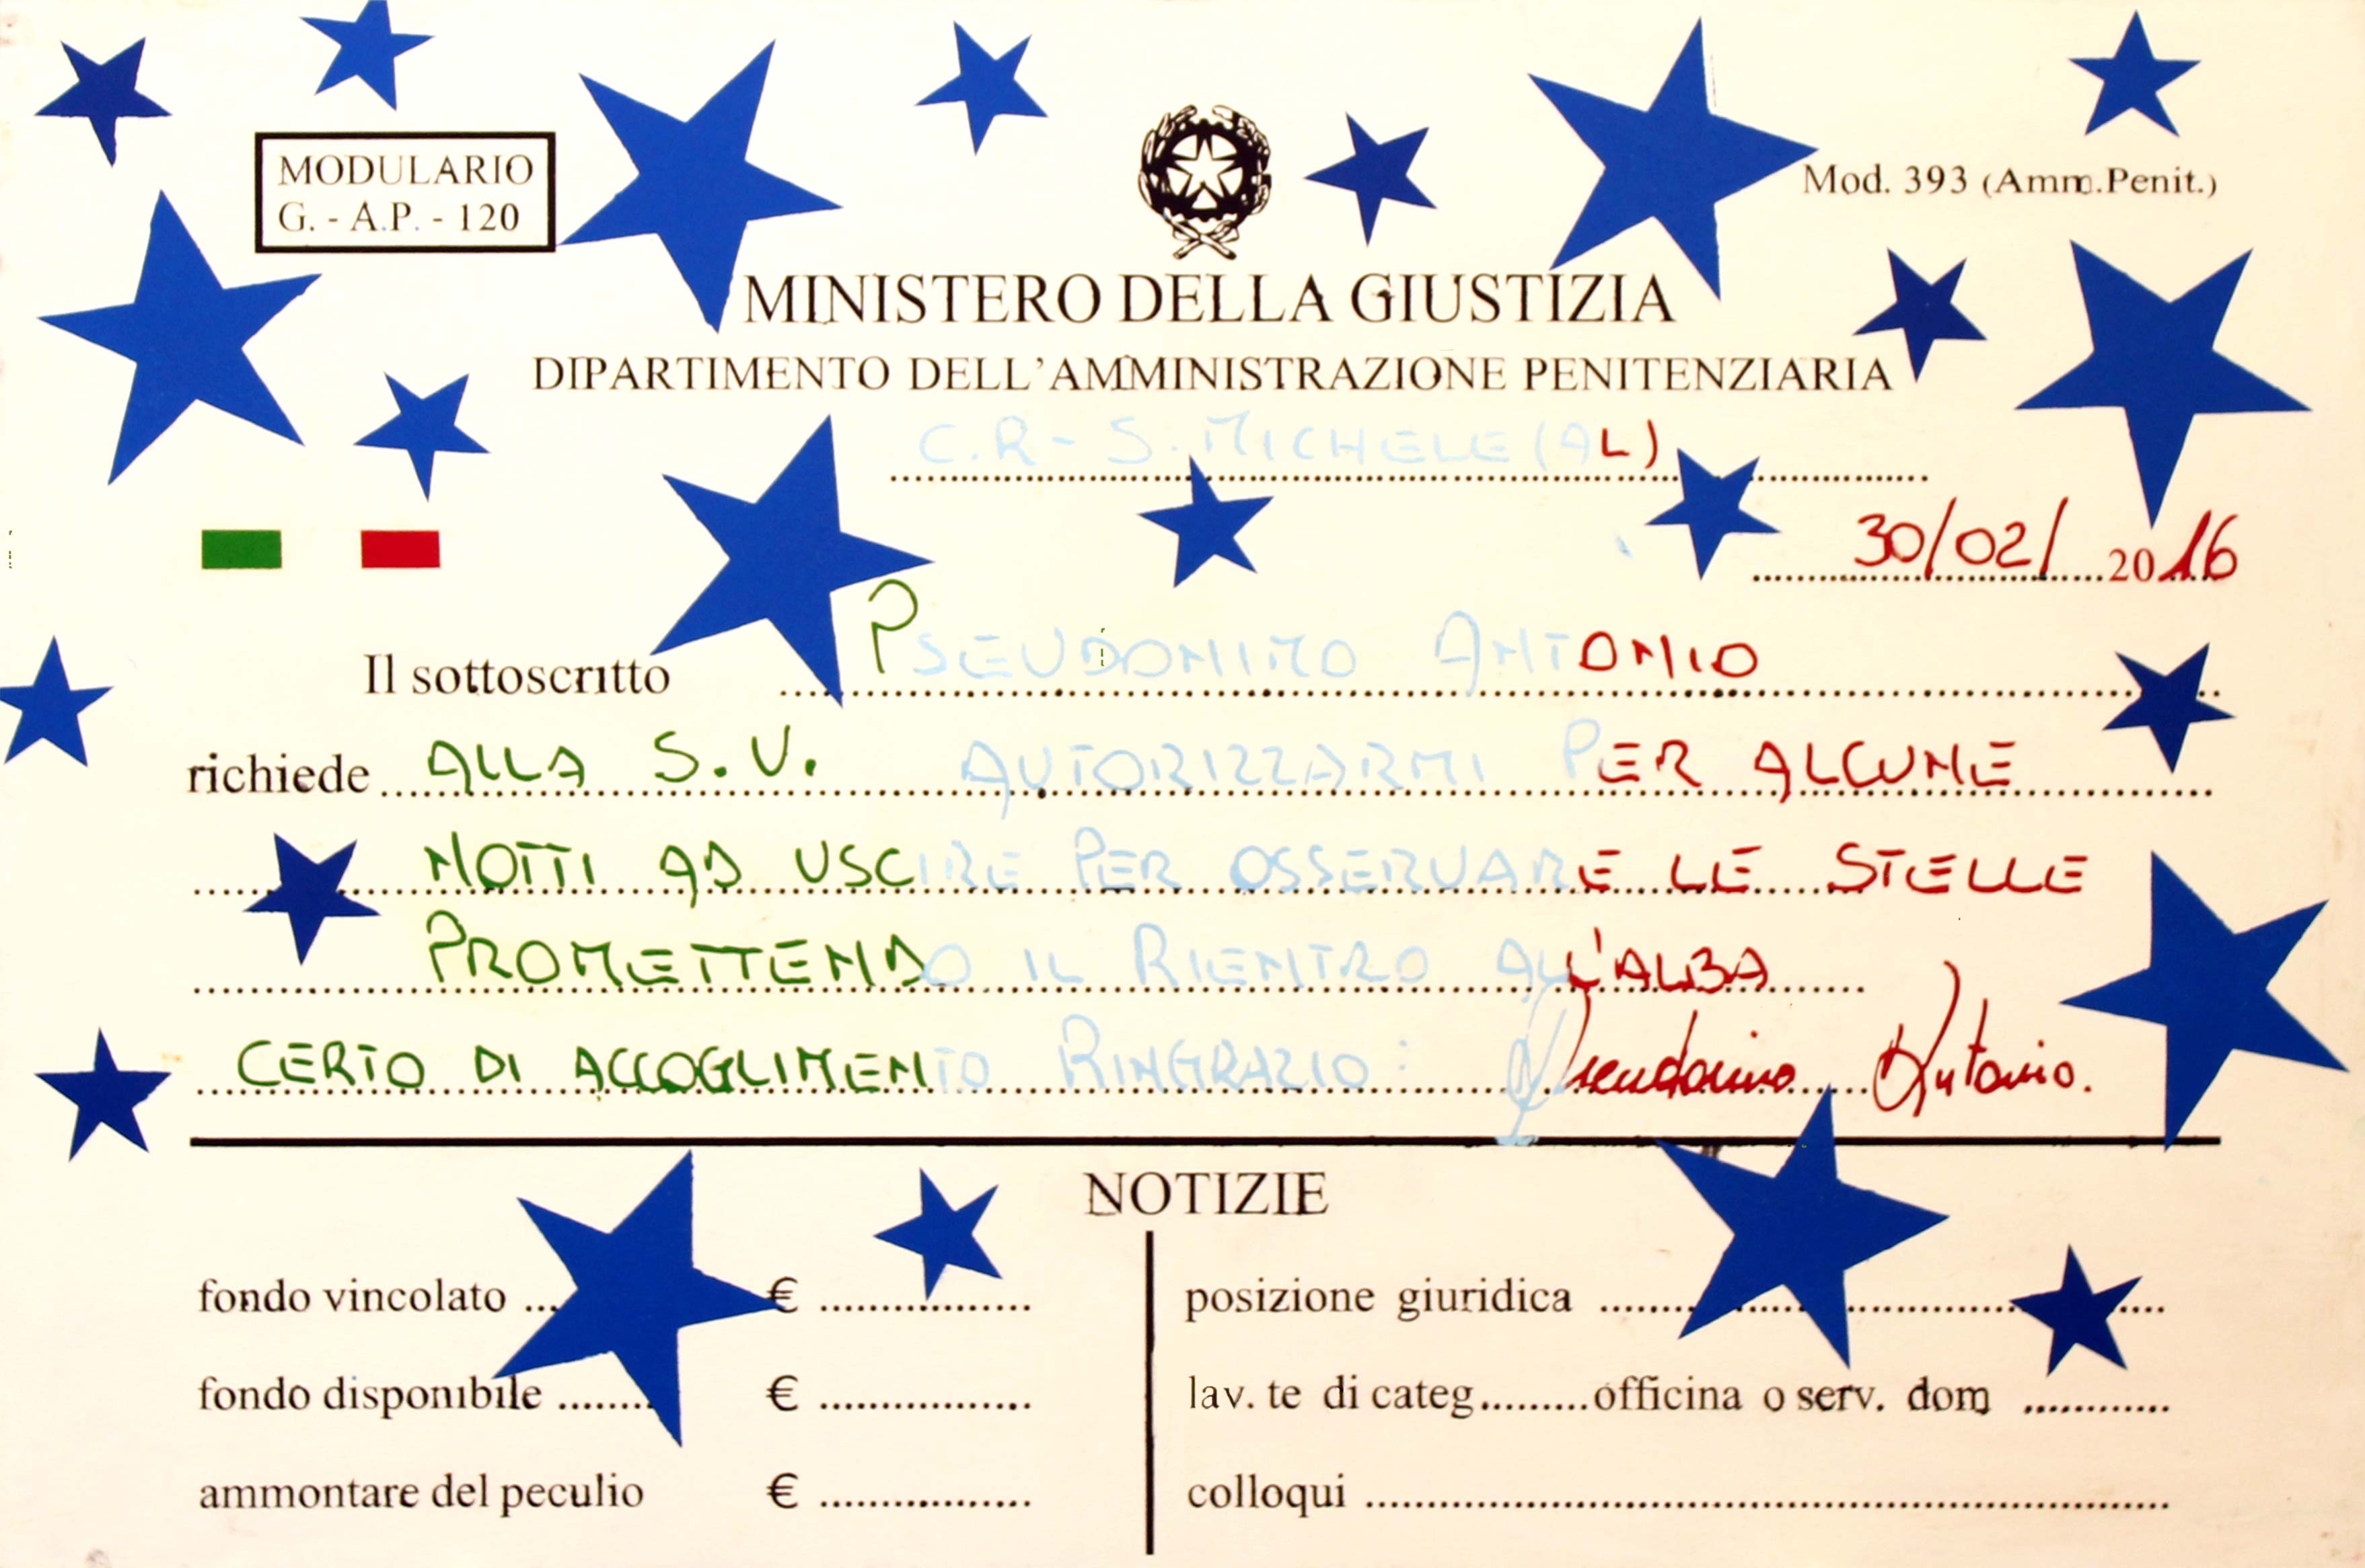 MODULARIO
G. - A.P. - 120
Mod. 393 (Amm.Penit.)
MINISTERO DELLA GIUSTIZIA
DIPARTIMENTO DELL'AMMINISTRAZIONE PENITENZIARIA
C.R - S. MICHELE (AL)
30/02/ 2016
Il sottoscritto PSEUDONIMO ANTONIO
richiede ALLA S.V. AUTORIZZARMI PER ALCUNE
NOTTI AD USCIRE PER OSSERVARE LE STELLE
PROMETTENDO IL RIENTRO ALL'ALBA
CERTO DI ACCOGLIMENTO RINGRAZIO: Pseudonimo Antonio.
NOTIZIE
fondo vincolato ... € ................
posizione giuridica ................
fondo disponibile ........ € ................
lav. te di categ.........officina o serv. dom ............
ammontare del peculio € ................
colloqui ................